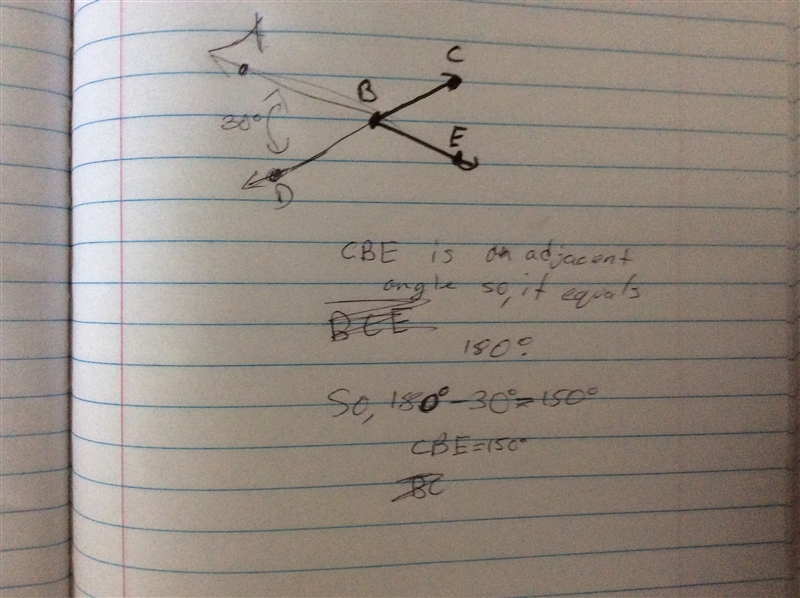 A
C
B
30°
E
D
CBE is an adjacent
angle so, it equals
BCE
180°.
So, 180° - 30° = 150°
CBE = 150°
BC